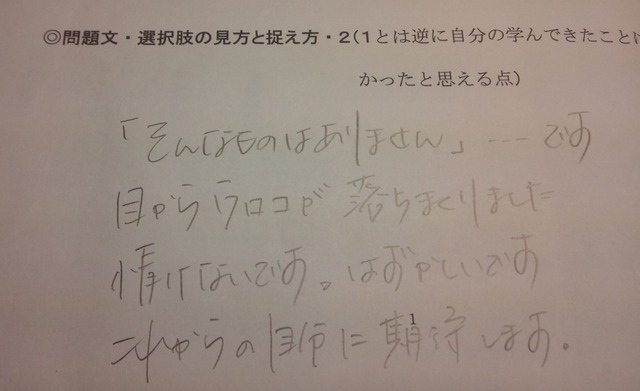 ◎問題文・選択肢の見方と捉え方・2(1とは逆に自分の学んできたことに
かったと思える点)
「そんなものはありません」……です
目からウロコが落ちまくりました
情けないです。はずかしいです
これからの自師に期待します。
1